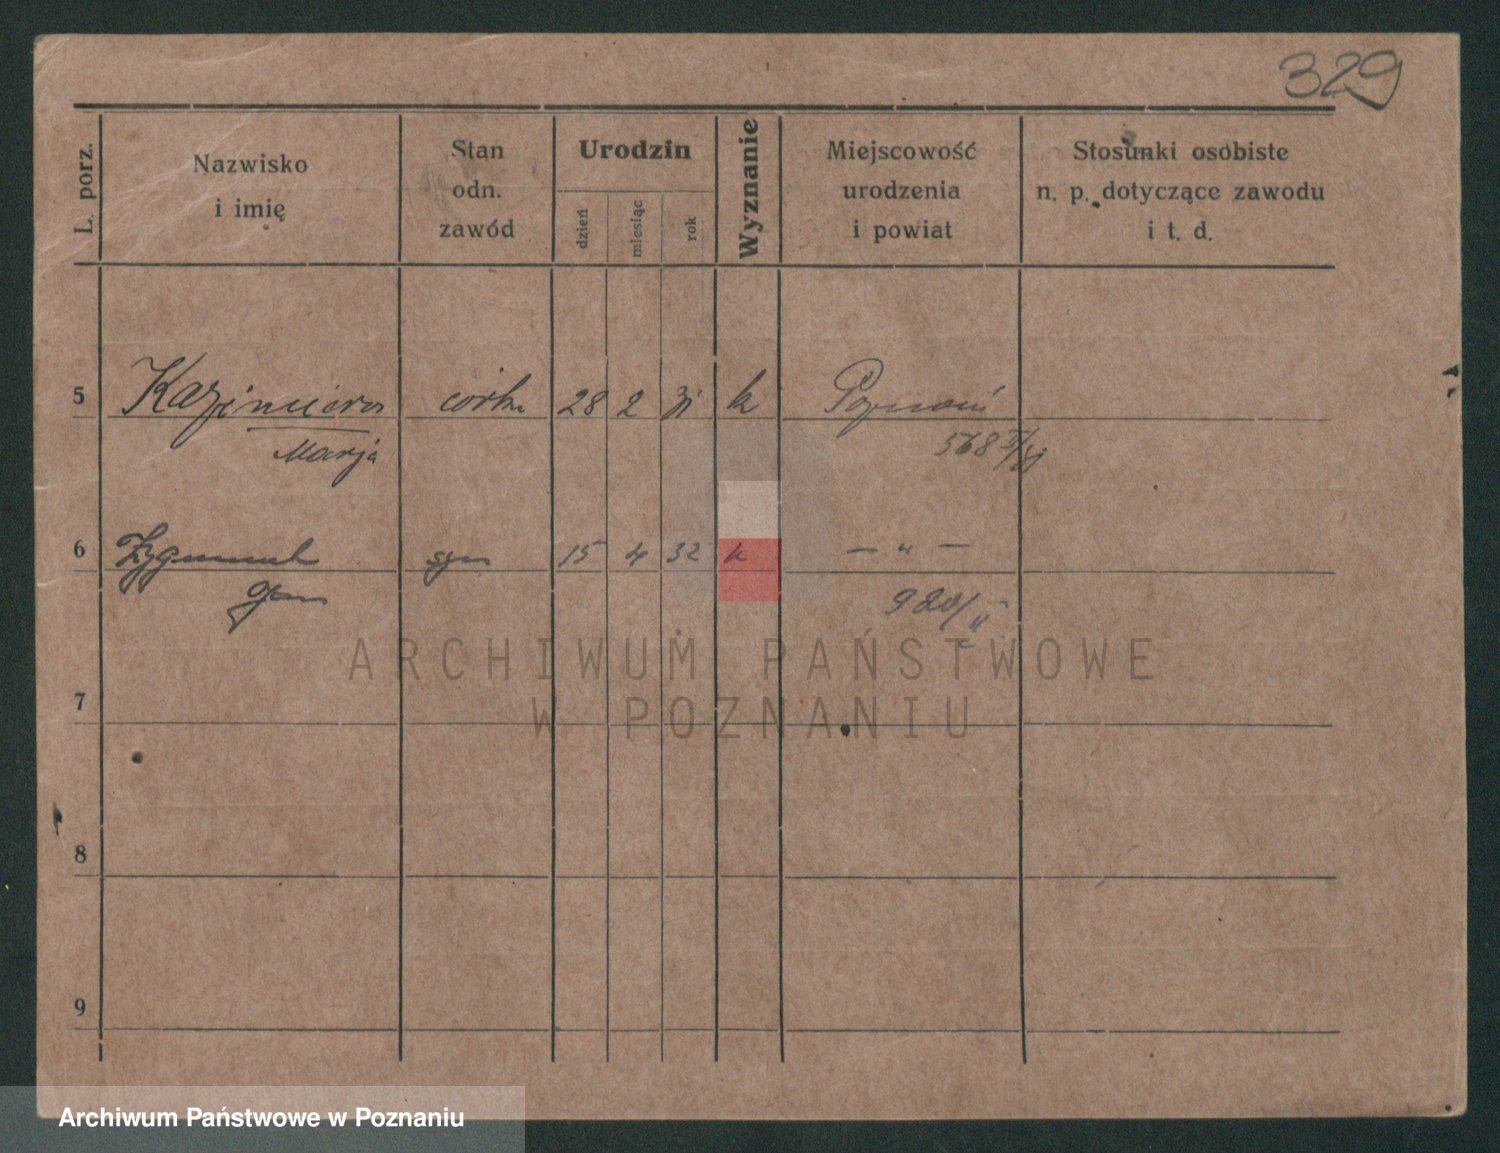 329
L. porz.
Nazwisko
i imię
Stan
odn.
zawód
Urodzin
dzień
miesiąc
rok
Wyznanie
Miejscowość
urodzenia
i powiat
Stosunki osobiste
n. p. dotyczące zawodu
i t. d.
5 Kazimiera córka 28 2 31 k Poznań
Marja
6 Zygmunt syn 15 4 32 k — " —
Jan
ARCHIWUM PAŃSTWOWE
W POZNANIU
7
8
9
Archiwum Państwowe w Poznaniu